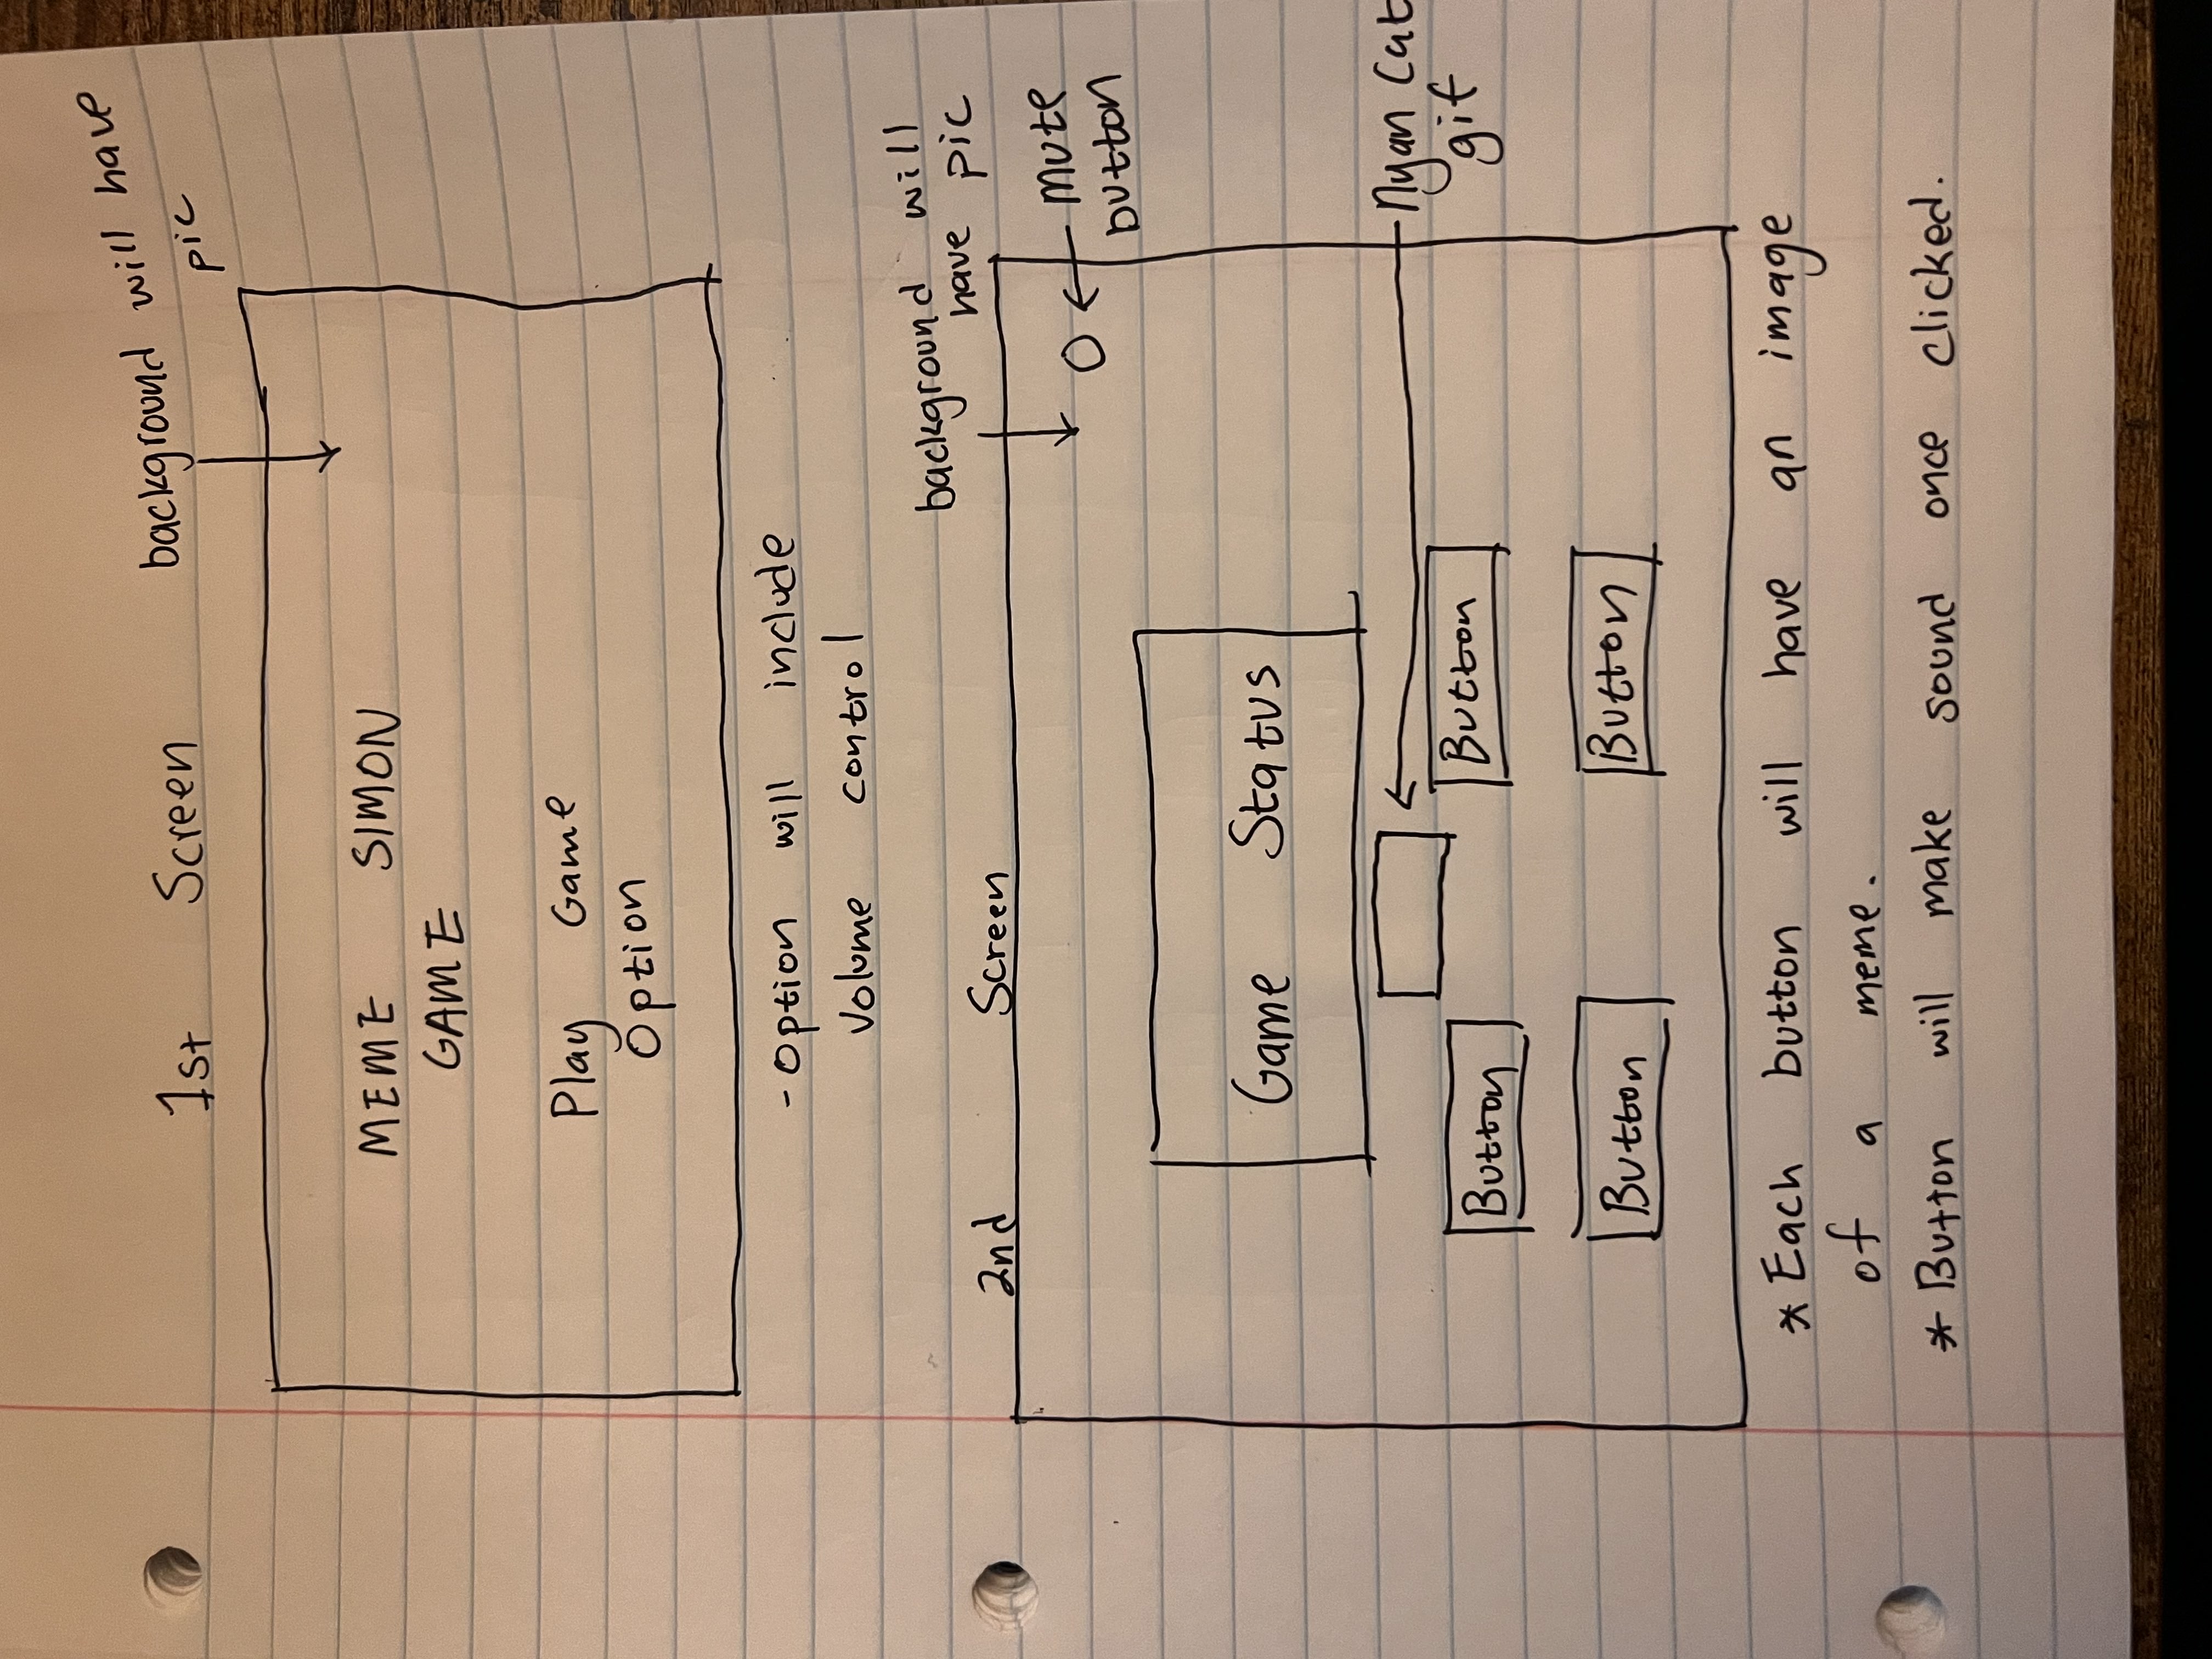 1st Screen
background will have
pic
MEME SIMON
GAME
Play Game
Option
- Option will include
Volume control
background will
have pic
2nd Screen
mute
button
Game Status
Nyan Cat
gif
Button
Button
Button
Button
* Each button will have an image
of a meme.
* Button will make sound once clicked.